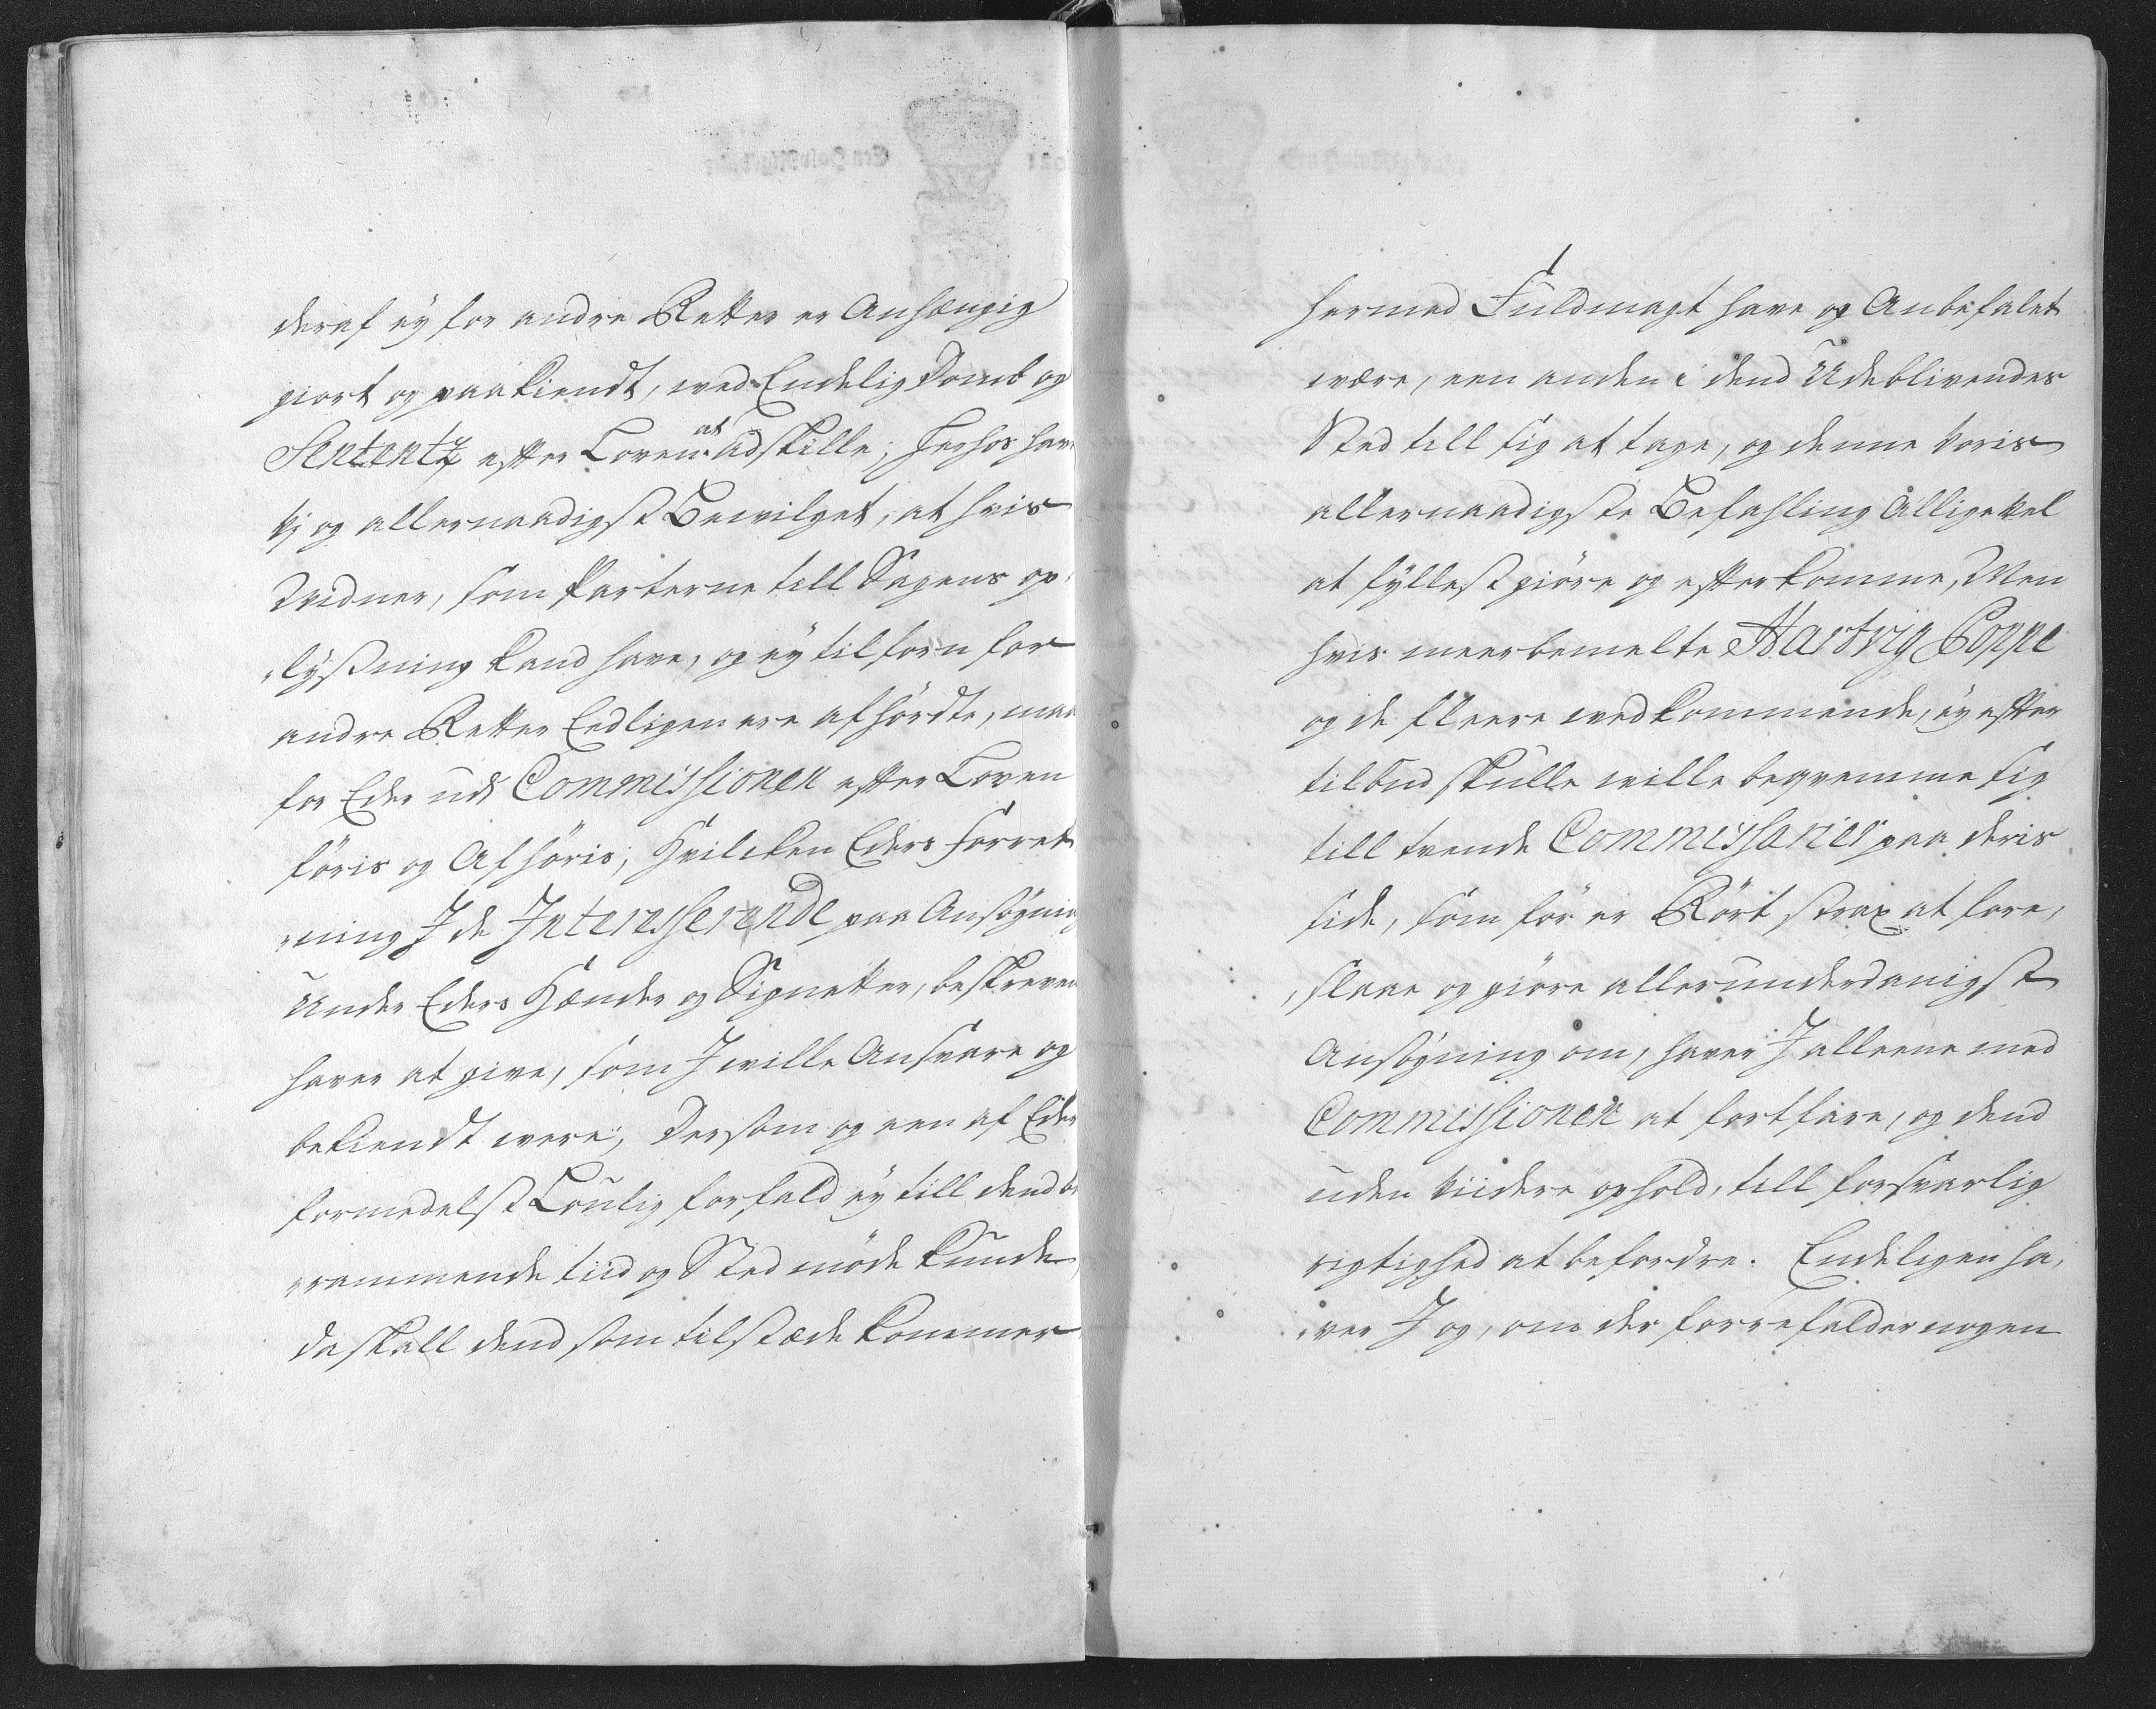 deraf ey for andre Retter er Anhængig
giort og paakiendt, med Endelig Domb og
Sententz efter Loven at adskille; Herhos hav
Vj og allernaadigst Bevilget, at hvis
Vidner, som Parterne till Sagens op-
lysning kand have, og ey tilforn for
andre Retter Eedligen ere afhördte, maa
for Eder udj Commissionen efter Loven
föris og Afhöris; Hvilcken Eders Forret-
ning I de Interesserende paa Ansögning
Under Eders Hænder og Signetter, beskreven
haver at give, som I ville Ansvare og
bekiendt være; Dersom og een af Eder
formedelst Louligforfald ey till dend be-
rammende tiid og Sted möde kunde,
da skall dend som tilstæde kommer
hermed Fuldmagt have og Anbefalet
være, een anden i dend Udeblivendes
Sted till sig at tage, og denne Voris
allernaadigste Befahling Alligevel
at fyllestgiöre og efterkomme, Men
hvis meerbemelte Hartvig Poppe
og de fleere vedkommende, ey efter
tilbud skulle ville beqvemme sig
till tvende Commissarier paa deris
side, som för er Rört strax at fore-
slaae og giöre allerunderdanigst
Ansögning om, haver I alleene med
Commissionen at fortfare, og dend
uden viidere ophold, till forsvarlig
rigtighed at befordre. Endeligen ha-
ver I og, om der forrefalder nogen